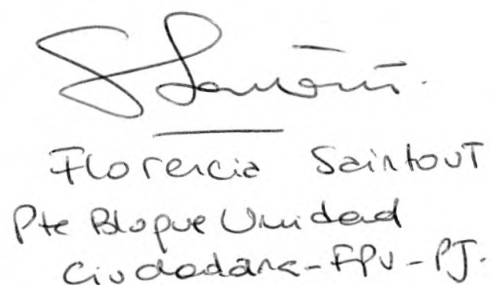 Florencia Saintout
Pte Bloque Unidad
Ciudadana-FPV-PJ.